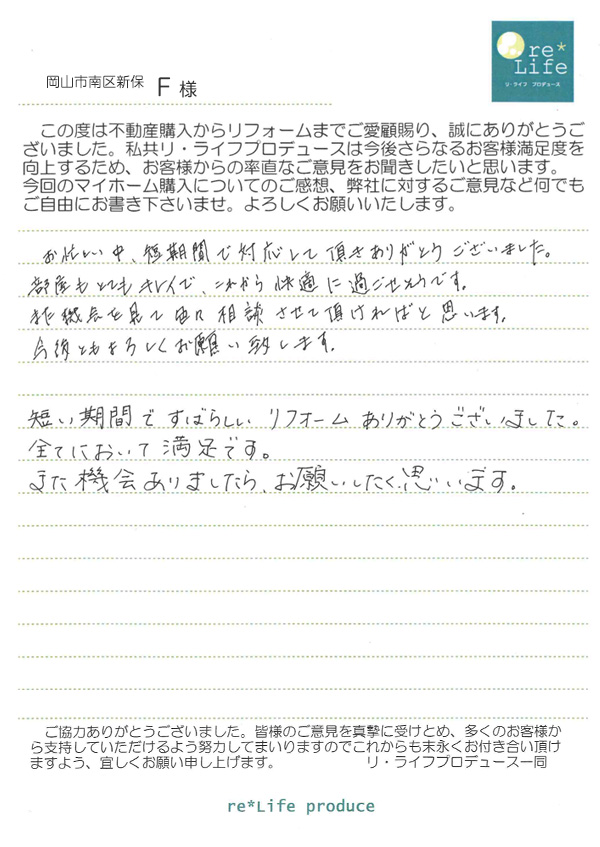 re*
Life
リ・ライフ プロデュース
岡山市南区新保 F 様
この度は不動産購入からリフォームまでご愛顧賜り、誠にありがとうご
ざいました。私共リ・ライフプロデュースは今後さらなるお客様満足度を
向上するため、お客様からの率直なご意見をお聞きしたいと思います。
今回のマイホーム購入についてのご感想、弊社に対するご意見など何でも
ご自由にお書き下さいませ。よろしくお願いいたします。
お忙しい中、短期間で対応して頂きありがとうございました。
部屋もとてもキレイで、これから快適に過ごせそうです。
また機会を見て 相談させて頂ければと思います。
今後ともよろしくお願い致します。
短い期間ですばらしいリフォームありがとうございました。
全てにおいて満足です。
また機会ありましたら、お願いしたく思います。
ご協力ありがとうございました。皆様のご意見を真摯に受けとめ、多くのお客様か
ら支持していただけるよう努力してまいりますのでこれからも末永くお付き合い頂け
ますよう、宜しくお願い申し上げます。 リ・ライフプロデュース一同
re*Life produce